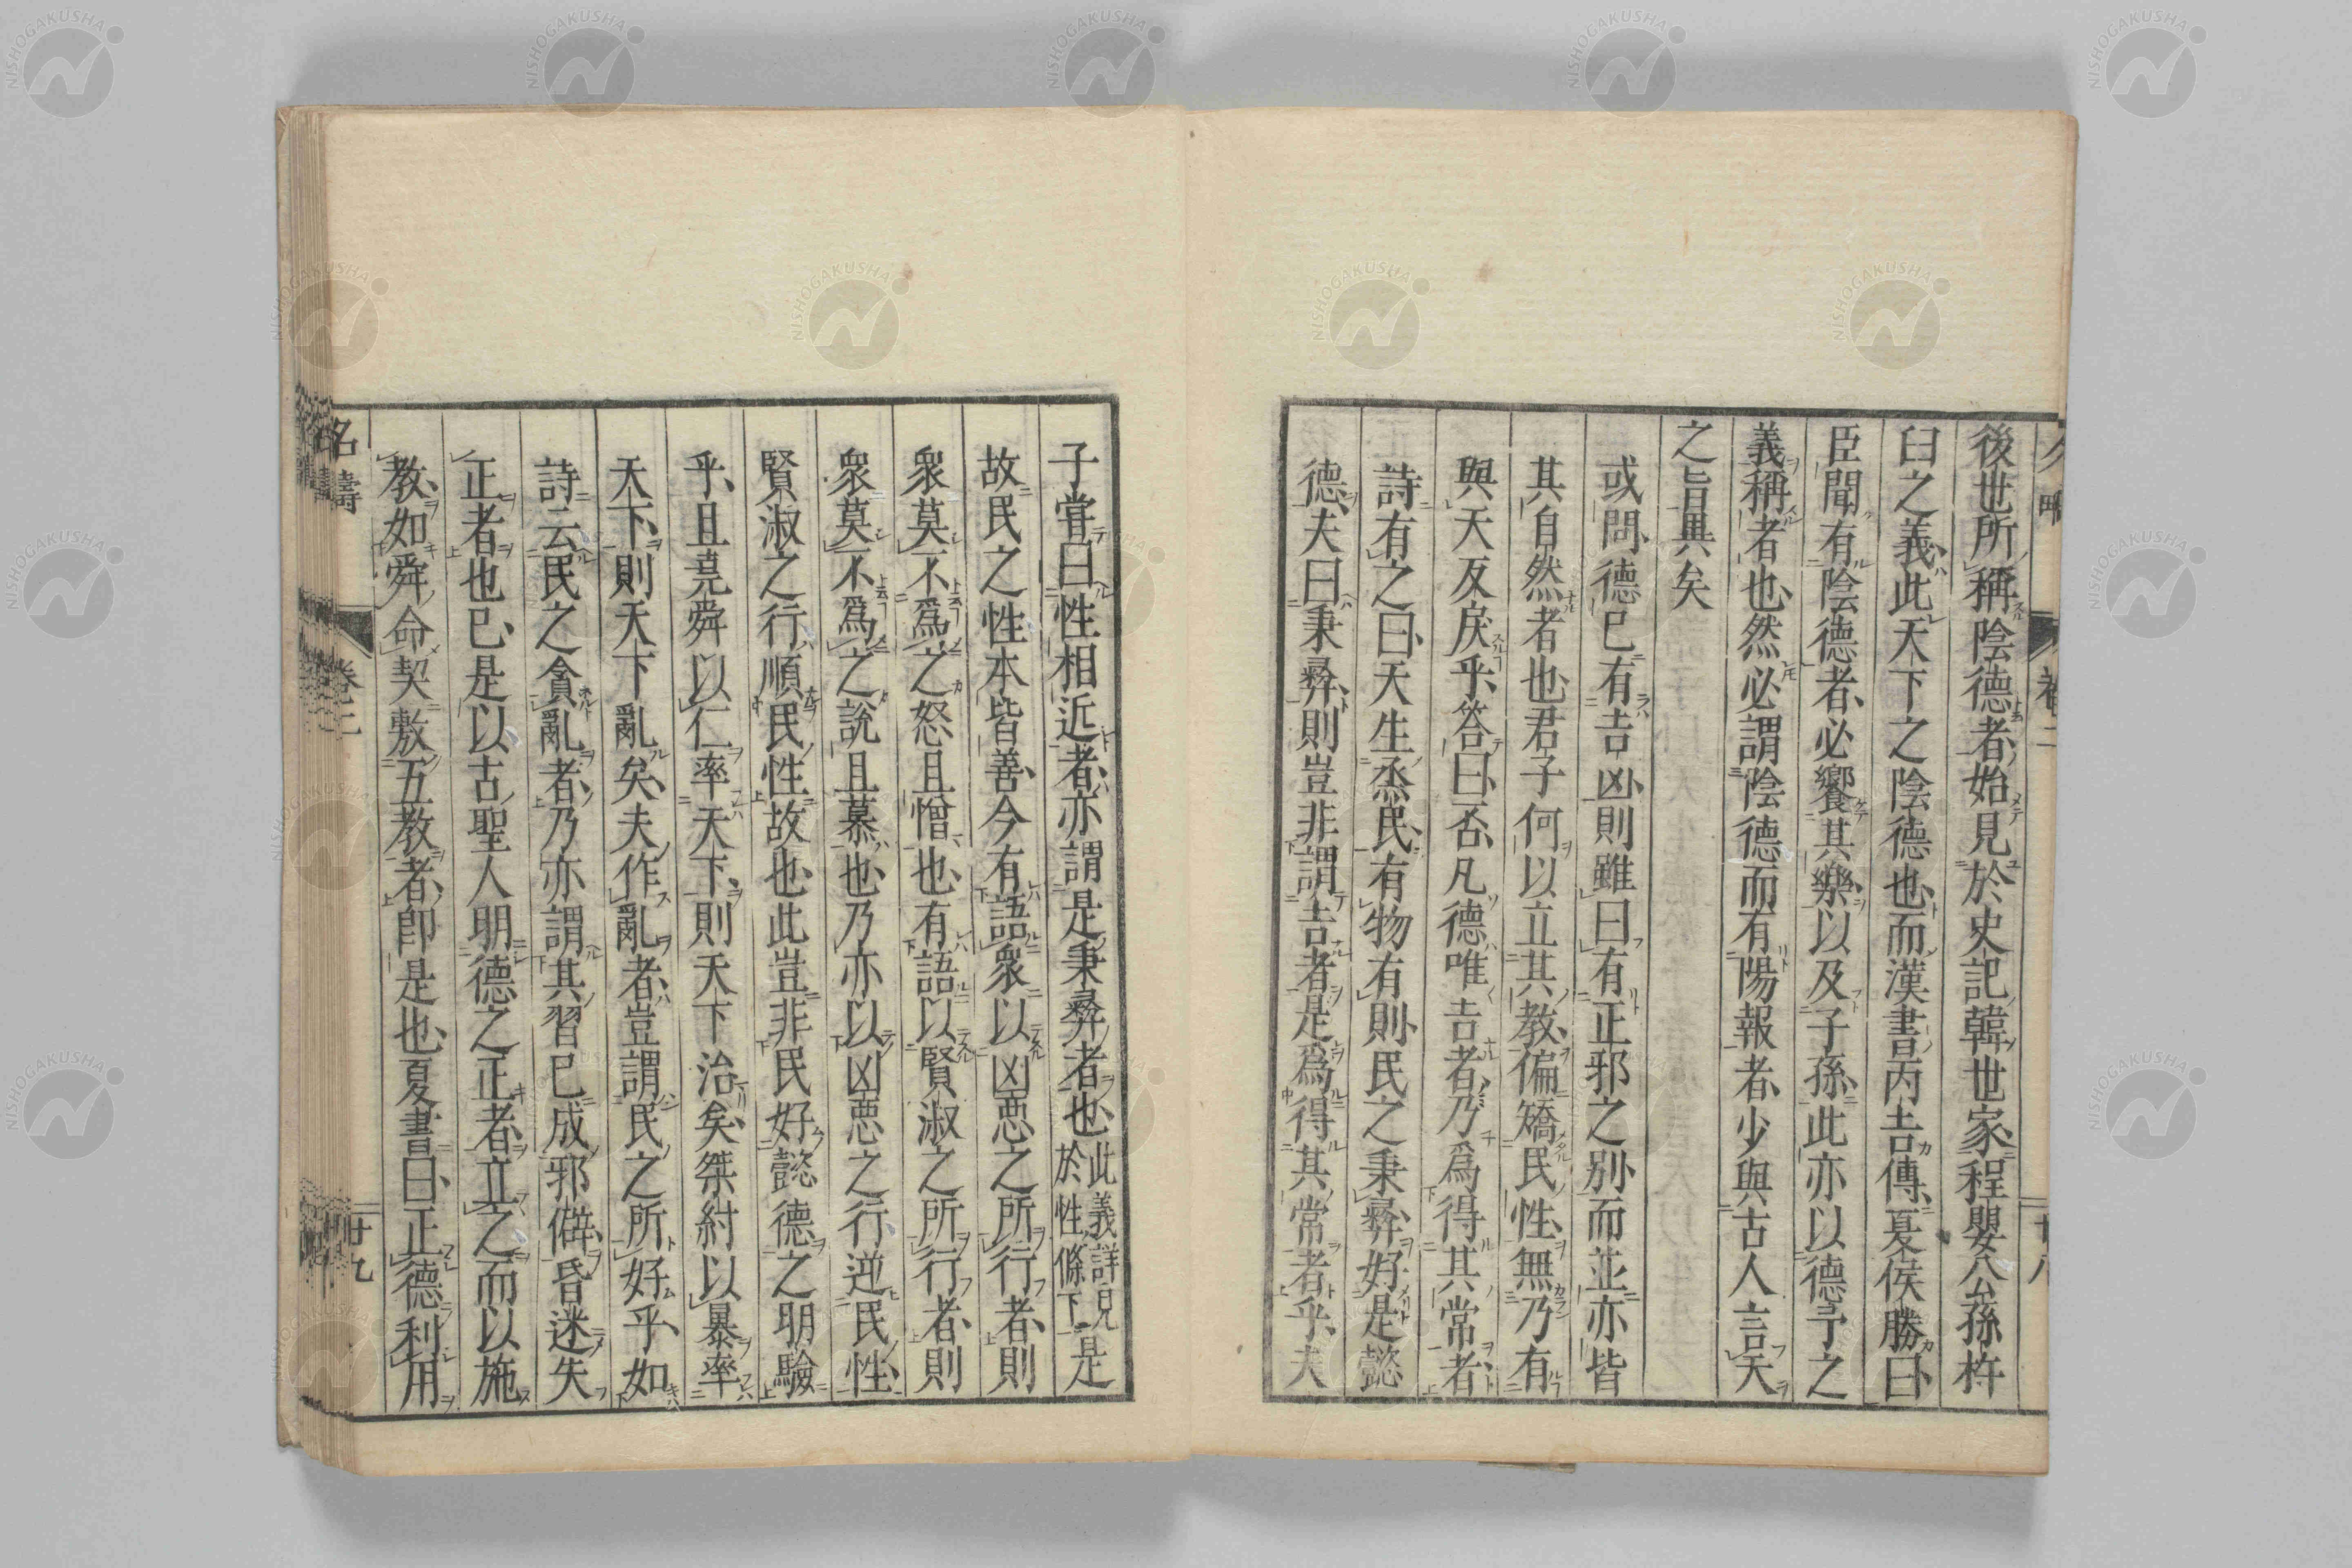 後世所稱陰德者始見於史記韓世家程嬰公孫杵
臼之義此天下之陰德也而漢書丙吉傳夏侯勝曰
臣聞有陰德者必饗其樂以及子孫此亦以德予之
義稱者也然必謂陰德而有陽報者少與古人言天
之旨異矣
或問德已有吉凶則雖曰有正邪之別而並亦皆
其自然者也君子何以立其教偏矯民性無乃有
與天反戾乎答曰否凡德唯吉者乃爲得其常者
詩有之曰天生烝民有物有則民之秉彝好是懿
德夫曰秉彝則豈非謂吉者是爲得其常者乎夫
子嘗曰性相近者亦謂是秉彝者也此義詳見於性條下是
故民之性本皆善今有語衆以凶惡之所行者則
衆莫不爲之怒且憎也有語以賢淑之所行者則
衆莫不爲之說且慕也乃亦以凶惡之行逆民性
賢淑之行順民性故也此豈非民好懿德之明驗
乎且堯舜以仁率天下則天下治矣桀紂以暴率
天下則天下亂矣夫作亂者豈謂民之所好乎如
詩云民之貪亂者乃亦謂其習已成邪僻昏迷失
正者也已是以古聖人明德之正者立之而以施
教如舜命契敷五教者卽是也夏書曰正德利用
名疇 卷二 廿九
NISHOGAKUSHA